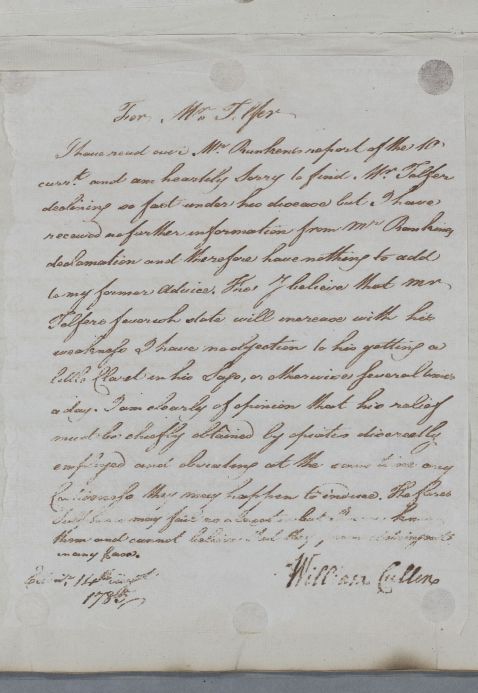 For Mr. Telfer
I have read over Mr. Rankens report of the 10
currt. and am heartily Sorry to find Mr. Telfer
declining so fast under his disease but I have
received no further information from Mr. Rankens
declamation and therefore have nothing to add
to my former Advice. Tho' I believe that Mr
Telfers feverish state will increase with his
weakness I have no objection to his getting a
little Claret in his Sago, or otherwise Several times
a day. I am clearly of opinion that his relief
must be chiefly obtained by opiates discreetly
employed and obviating at the same time any
Costiveness they may happen to induce. The
may but
them and cannot believe that they
in any Case.
14th
178
William Cullen